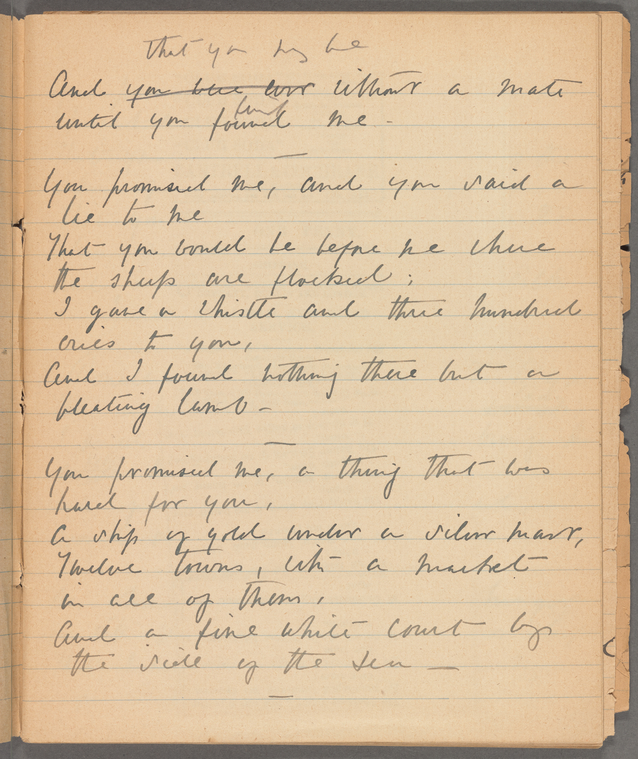 that you may be
And you ~~were ever~~ without a mate
until you found find me -
You promised me, and you said a
lie to me
That you would be before me where
the sheep are flocked;
I gave a whistle and three hundred
cries to you,
And I found nothing there but a
bleating lamb -
You promised me, a thing that was
hard for you,
A ship of gold under a silver mast,
Twelve towns, with a market
in all of them,
And a fine white court by
the side of the sea -